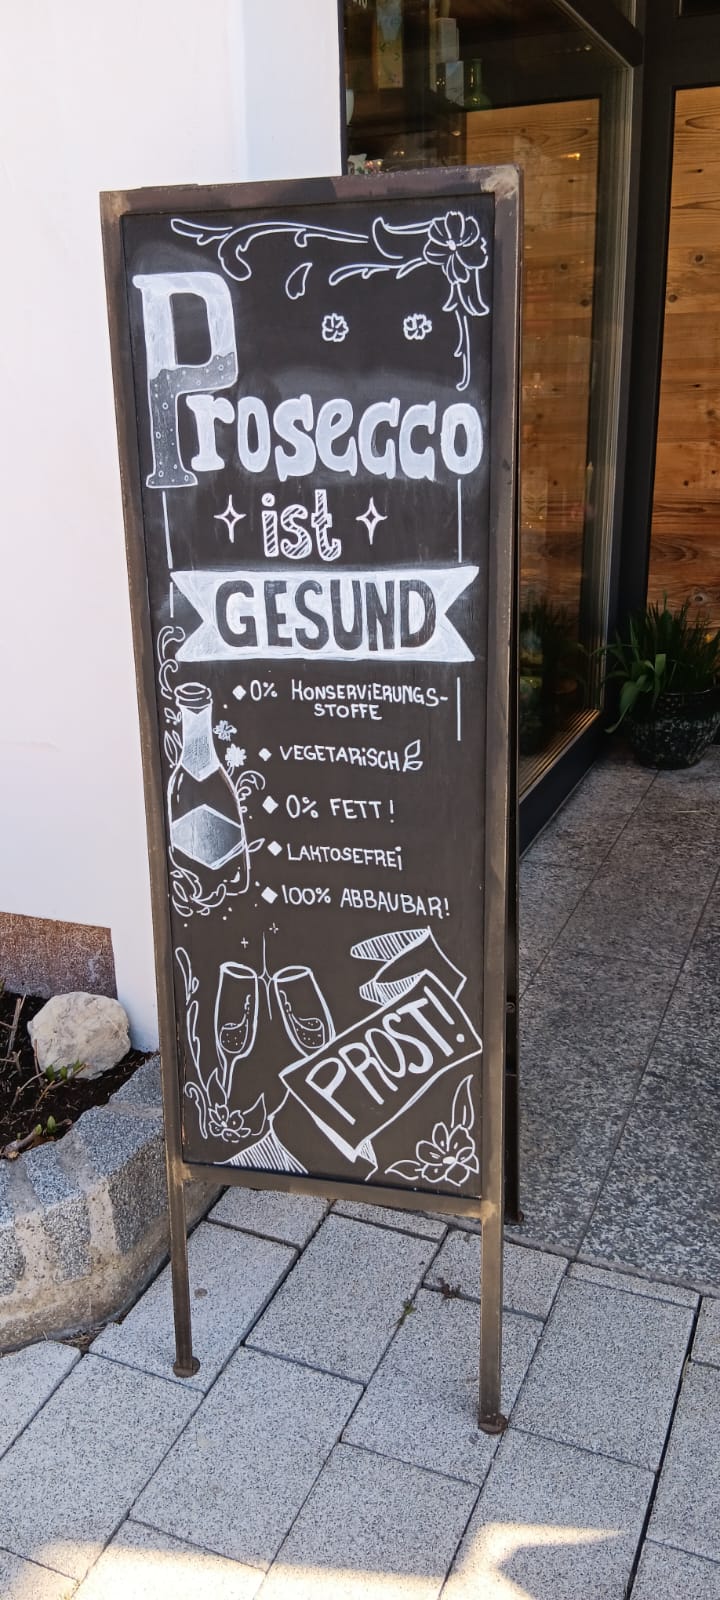 Prosecco
ist
GESUND
0% KONSERVIERUNGS-
STOFFE
VEGETARISCH
0% FETT!
LAKTOSEFREI
100% ABBAUBAR!
PROST!